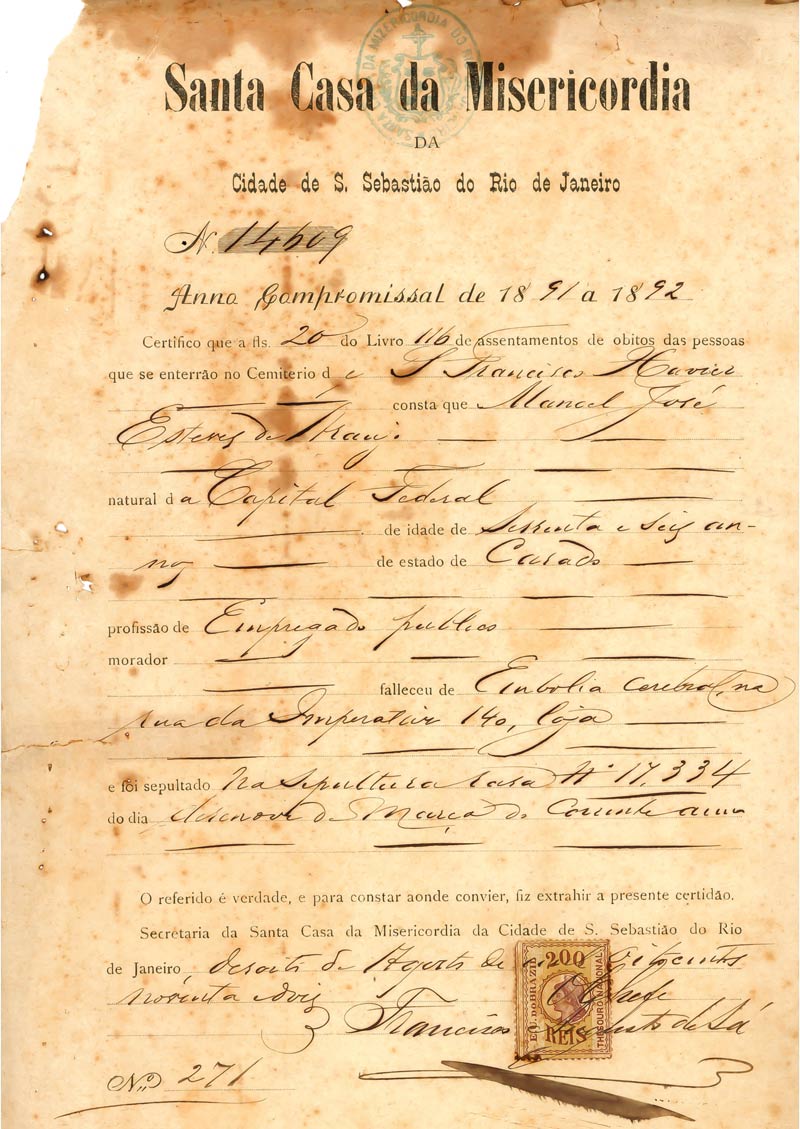 Santa Casa da Misericordia
DA
Cidade de S. Sebastião do Rio de Janeiro
N. 14609
Anno Compromissal de 1891 a 1892
Certifico que a fls. 20 do Livro 116 de assentamentos de obitos das pessoas
que se enterrão no Cemiterio de S Francisco Xavier
consta que Manoel José
Esteves de Arauj.
natural da Capital Federal
de idade de Sessenta e seis an-
nos de estado de Casado
profissão de Empregado publico
morador
falleceu de Embolia cerebral, na
rua da Imperatriz 140, loja
e foi sepultado na sepultura rasa Nº 17,334
do dia desenove de Março do corrente anno
O referido é verdade, e para constar aonde convier, fiz extrahir a presente certidão.
Secretaria da Santa Casa da Misericordia da Cidade de S. Sebastião do Rio
de Janeiro, desoito de Agosto de mil oitocentos
noventa e dois O Chefe
Francisco Augusto de Sá
E. U. DO BRAZIL 200 REIS THESOURO NACIONAL
Nº 271